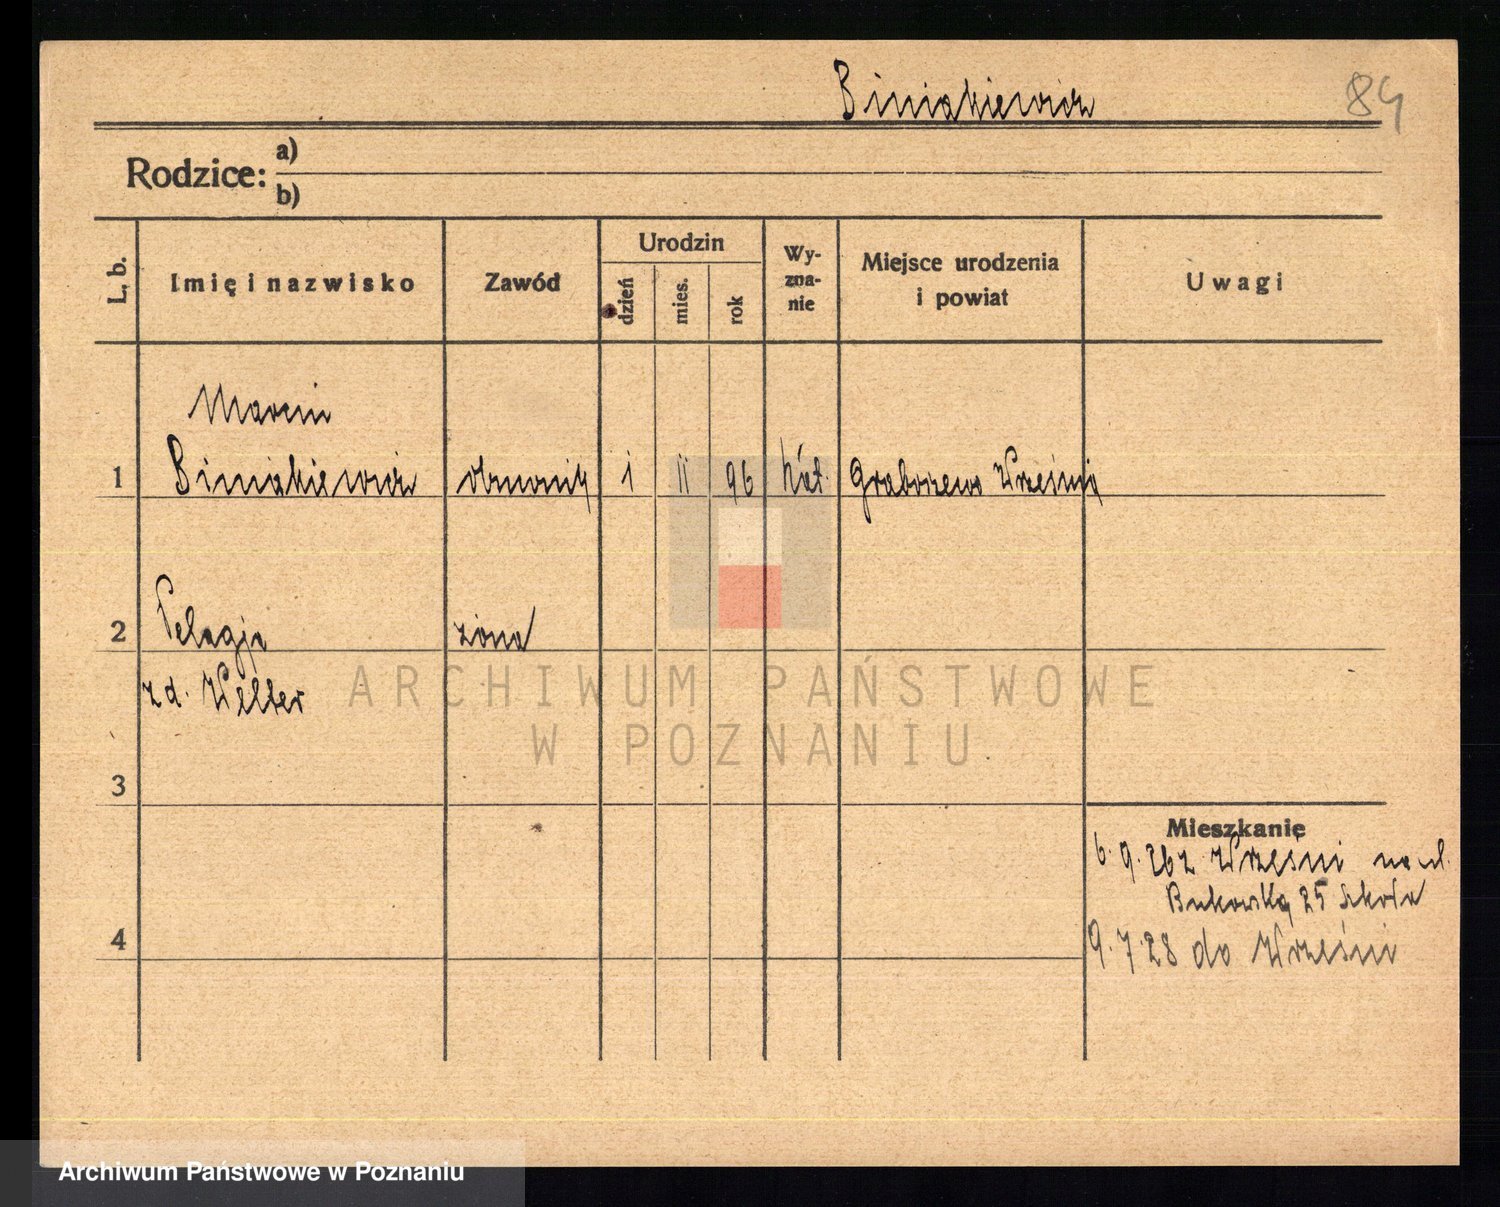 Biniakiewicz 84
Rodzice: a)
b)
L. b. Imię i nazwisko Zawód Urodzin dzień mies. rok Wy-zna-nie Miejsce urodzenia i powiat Uwagi
Marcin
1 Biniakiewicz 1 11 96 kat. Graboszewo Września
2 Pelagja żona
zd. Welter
ARCHIWUM PAŃSTWOWE
W POZNANIU
3
Mieszkanie
6.9.26 z Wrześni na ul.
Bukowską 25 Szkoła
4 9.7.28 do Wrześni
Archiwum Państwowe w Poznaniu